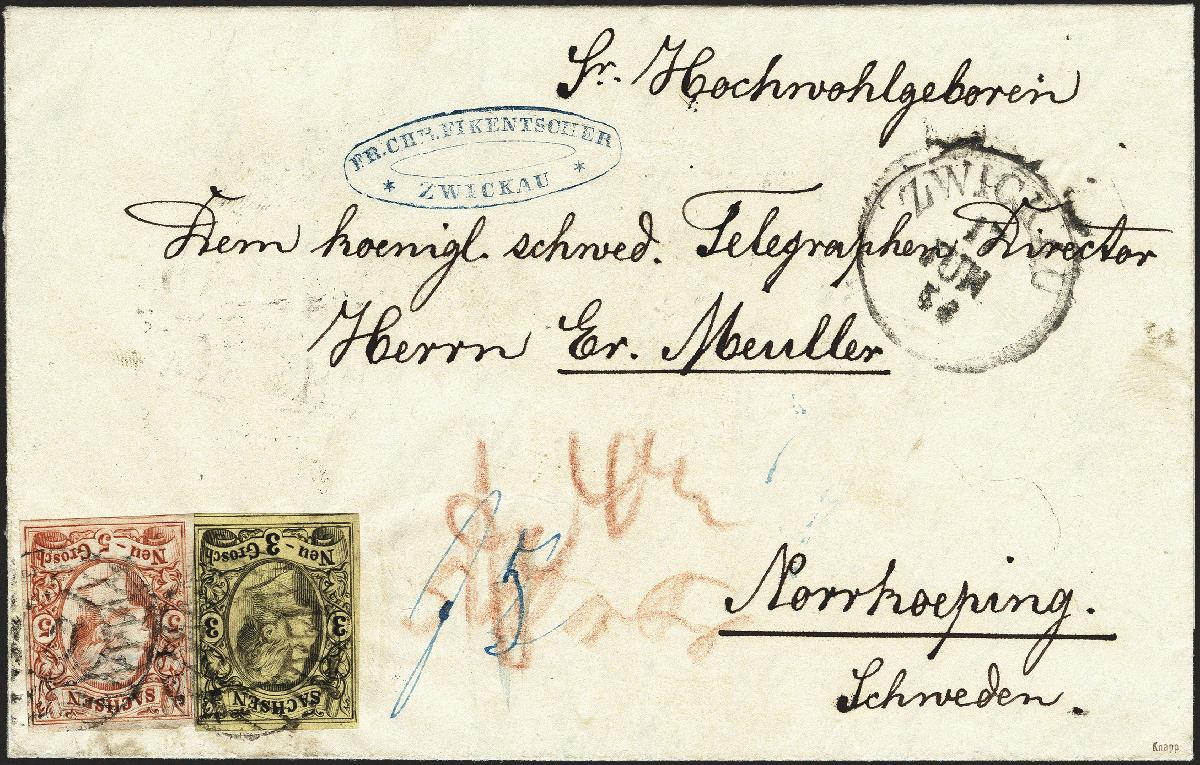 Sr. Hochwohlgeboren
FR. CHR. FIKENTSCHER
* ZWICKAU *
ZWICKAU
17
JUN
Dem koenigl. schwed. Telegraphen Director
Herrn Er. Meuller
Norrkoeping.
Schweden.
Neu - 5 Grosch
5 5
SACHSEN
Neu - 3 Grosch
3 3
SACHSEN
Knapp